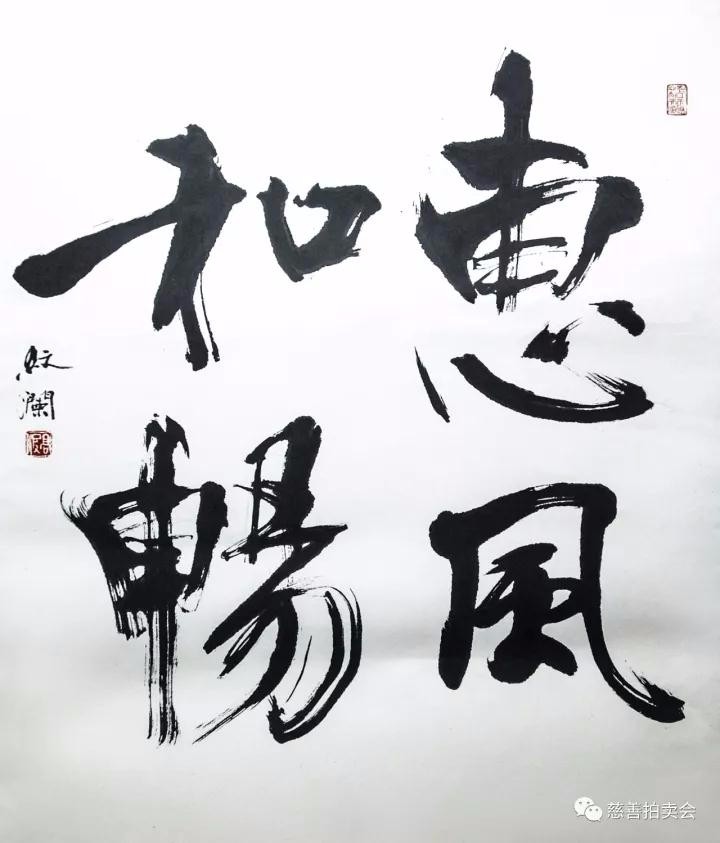 惠風
和暢
慈善拍卖会